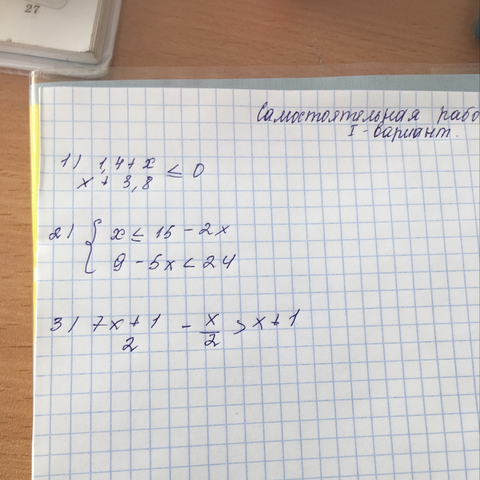 27
Самостоятельная рабо
I - вариант.
1) 1,4 + x
x + 3,8 ≤ 0
2) { x ≤ 15 - 2x
9 - 5x < 24
3) 7x + 1 / 2 - x / 2 > x + 1